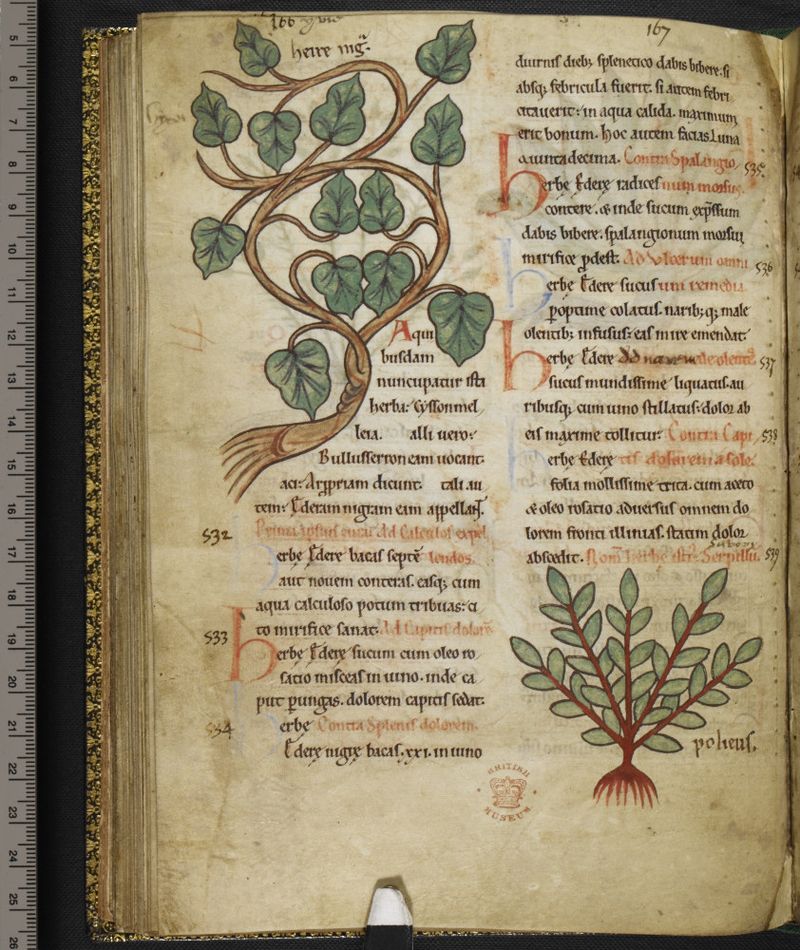 166
167
herre nig̅.
A qui
busdam
nuncupatur ista
herba: Cyssonmel
leia. alii uero:
Bullufferron eam uocant.
aci: Argyriam dicunt. tali au
tem: Ederam nigram eam appellant.
532
Prima ipsius cura Ad Calculos expel
erbę Ederę bacas septē lendos.
aut nouem conteras. easq; cum
aqua calculoso potum tribuas: ci
533
to mirifice sanat. Ad Capitis dolorē
herbę Ederę sucum cum oleo ro
sacio misceas in uino. inde ca
put pungas. dolorem capitis sedat.
534
erbę Contra Splenis dolorem.
Ederę nigrę bacas. xxi. in uino
diurnis dieb; splenetico dabis bibere. si
absq; febricula fuerit. si autem febri
citauerit: in aqua calida. maximum
erit bonum. hoc autem facias luna
quintadecima. Contra Spalangio
535
herbę Ederę radices num morsus.
contere. & inde sucum exp̄ssum
dabis bibere. spalangionum morsui
mirifice pdest. Ad Vlcerum omni
536
erbę Ederę sucus um remedia
poptime colatus. narib; q; male
olentib; infusus: eas mire emendat.
537
herbę Ederę Ad nares male olentes
sucus mundissime liquatus. au
ribusq; cum uino stillatus: dolor ab
538
eis maxime tollitur. Contra Capi
erbę Ederę tis dolorem a sole.
folia mollissime trita. cum aceto
& oleo rosatio aduersus omnem do
lorem fronti illinias. statim dolor
539
abscedit. Nom̄ herbe est: Serpillū.
polieus.
BRITISH
MUSEUM
5
6
7
8
9
10
11
12
13
14
15
16
17
18
19
20
21
22
23
24
25
26